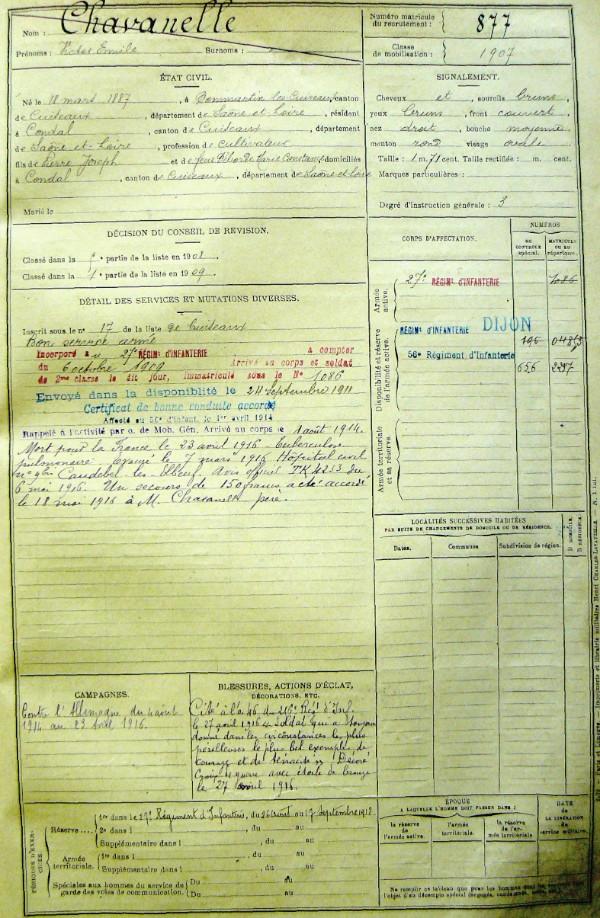 Nom : Chavanelle
Prénoms : Victor Emile Surnoms :
Numéro matricule du recrutement : 877
Classe de mobilisation : 1907
ÉTAT CIVIL.
Né le 18 mars 1887, à Dommartin les Cuiseaux, canton
de Cuiseaux, département de Saône et Loire, résident
à Condal, canton de Cuiseaux, département
de Saône-et-Loire, profession de cultivateur
fils de Pierre Joseph et de domiciliés
à Condal, canton de Cuiseaux, département de Saône et Loire
Marié le
SIGNALEMENT.
Cheveux et sourcils bruns,
yeux bruns, front couvert,
nez droit, bouche moyenne,
menton rond visage ovale
Taille : 1 m. 71 cent. Taille rectifiée : m. cent.
Marques particulières :
Degré d'instruction générale : 3
DÉCISION DU CONSEIL DE REVISION.
Classé dans la partie de la liste en 1908
Classé dans la partie de la liste en 1909
DÉTAIL DES SERVICES ET MUTATIONS DIVERSES.
Inscrit sous le no 17 de la liste de Cuiseaux
Bon service armé
Incorporé au 27e RÉGIMt D'INFANTERIE à compter
du 6 octobre 1909 Arrivé au corps et soldat
de 2me classe le dit jour, immatriculé sous le No 1086
Envoyé dans la disponiblité le 24 septembre 1911
Certificat de bonne conduite accordé
Affecté au 56e d'Infant. le 1er avril 1914
Rappelé à l'activité par o. de Mob. Gén. Arrivé au corps le août 1914.
Mort pour la France le 23 avril 1916 tuberculose
pulmonaire 7 mars 1916 Hôpital civil
Caudebec les Elbeuf. Avis officiel 4253 du
6 mai 1916. Un secours de 150 francs a été accordé
le 18 mai 1916 à M. Chavanelle père.
CORPS D'AFFECTATION.
NUMÉROS
AU CONTRÔLE spécial.
MATRICULE OU AU répertoire.
Armée active.
27e RÉGIMt D'INFANTERIE 1086
Disponibilité et réserve de l'armée active.
RÉGIMt D'INFANTERIE DIJON
56e Régiment d'Infanterie 656 2257
Armée territoriale et sa réserve.
LOCALITÉS SUCCESSIVES HABITÉES
PAR SUITE DE CHANGEMENTS DE DOMICILE OU DE RÉSIDENCE.
Dates. Communes Subdivision de région. D DOMICILE. R RÉSIDENCE.
CAMPAGNES.
Contre l'Allemagne du août
1914 au 23 Avril 1916.
BLESSURES, ACTIONS D'ÉCLAT,
DÉCORATIONS, ETC.
Cité à l'o. 46 du Régt d'Inf.
le 27 avril 1916 "Soldat qui a toujours
donné dans les circonstances les plus
périlleuses le plus bel exemple de
courage et de ténacité" Décoré
Croix de guerre avec étoile de bronze
le 27 avril 1916.
PÉRIODES D'EXERCICES
Réserve 1re dans le Régiment d'Infanterie, du 26 août au 17 septembre 1912.
2e dans l , du au
Supplémentaire dans l , du au
Armée territoriale. 1re dans l , du au
Supplémentaire dans l , du au
Spéciales aux hommes du service de garde des voies de communication. Du au
Du au
ÉPOQUE
A LAQUELLE L'HOMME DOIT PASSER DANS :
la réserve de l'armée active.
l'armée territoriale.
la réserve de l'armée territoriale.
DATE DE LA LIBÉRATION du service militaire.